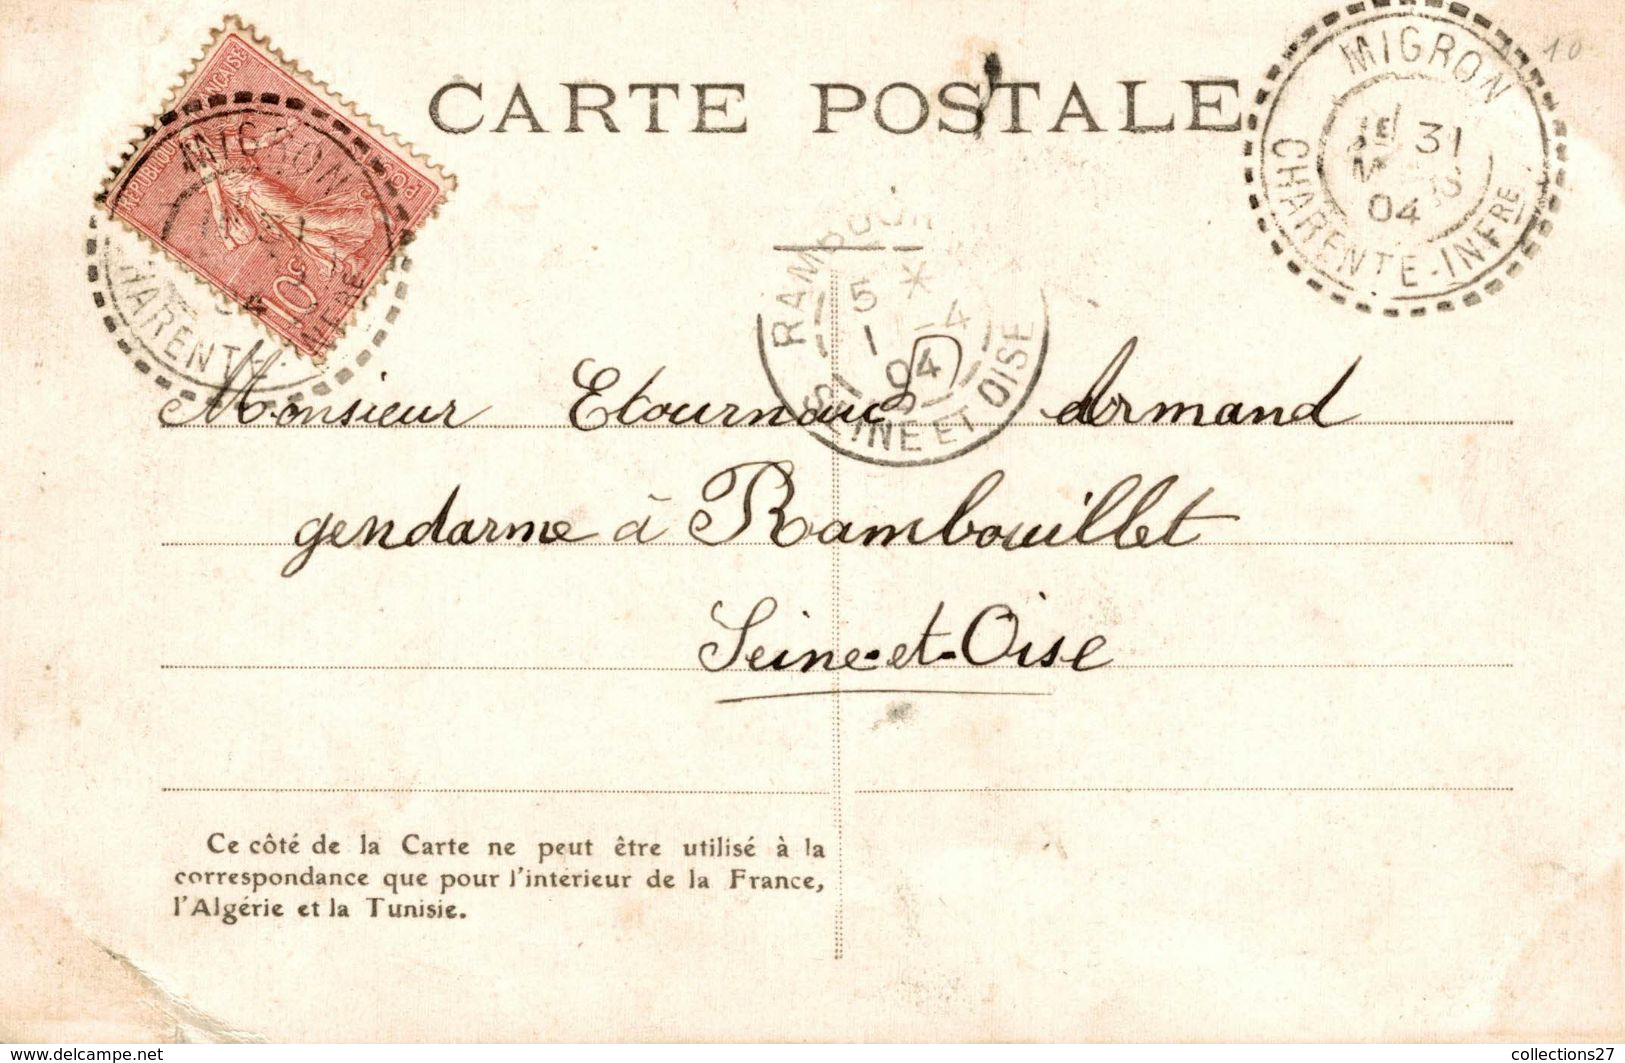 CARTE POSTALE
MIGRON
31
04
CHARENTE-INFRE
10
RÉPUBLIQUE FRANÇAISE
10c
MIGRON
31
CHARENTE-INFRE
5 *
1 -4
04
SEINE ET OISE
Monsieur Etournaud Armand
gendarme à Rambouillet
Seine-et-Oise
Ce côté de la Carte ne peut être utilisé à la
correspondance que pour l'intérieur de la France,
l'Algérie et la Tunisie.
www.delcampe.net
collections27